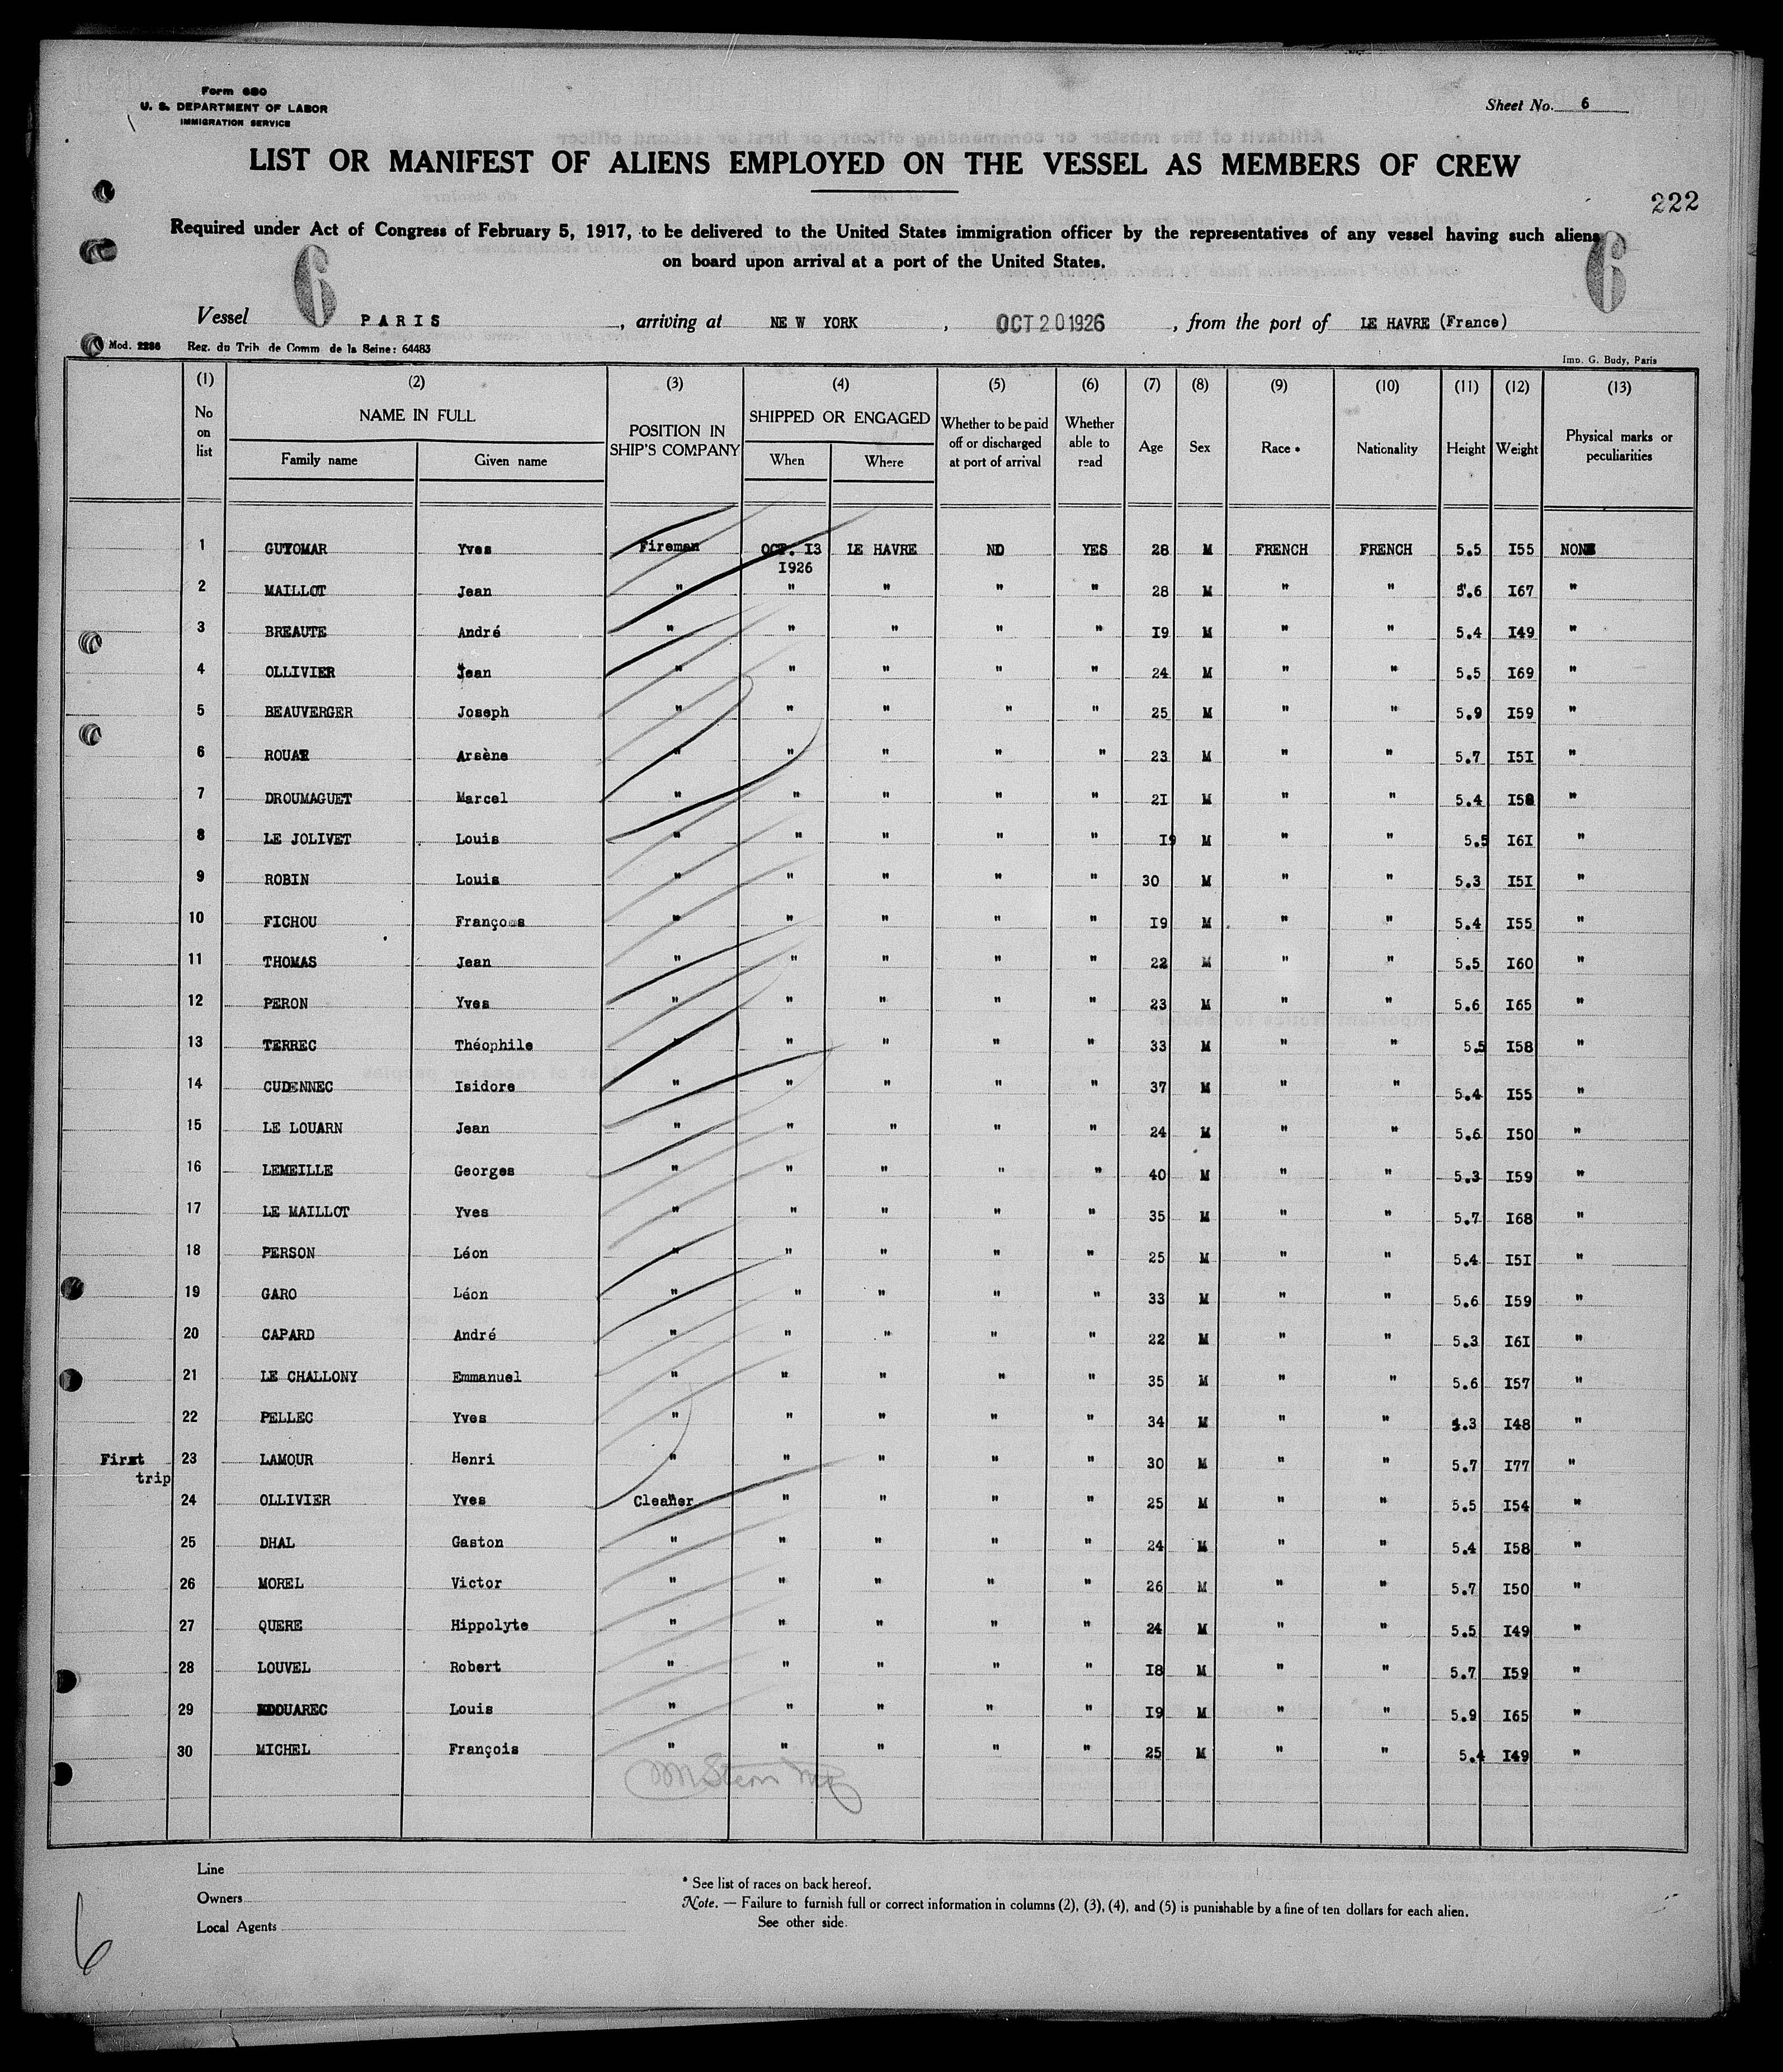 Form 680
U. S. DEPARTMENT OF LABOR
IMMIGRATION SERVICE
Sheet No. 6
LIST OR MANIFEST OF ALIENS EMPLOYED ON THE VESSEL AS MEMBERS OF CREW
222
Required under Act of Congress of February 5, 1917, to be delivered to the United States immigration officer by the representatives of any vessel having such aliens
on board upon arrival at a port of the United States.
6 6
Vessel PARIS, arriving at NEW YORK, OCT 20 1926, from the port of LE HAVRE (France)
Mod. 2286 Reg. du Trib. de Comm. de la Seine: 64483
Imp. G. Budy, Paris
(1) (2) (3) (4) (5) (6) (7) (8) (9) (10) (11) (12) (13)
No on list NAME IN FULL Family name Given name POSITION IN SHIP'S COMPANY SHIPPED OR ENGAGED When Where Whether to be paid off or discharged at port of arrival Whether able to read Age Sex Race * Nationality Height Weight Physical marks or peculiarities
1 GUYOMAR Yves Fireman OCT. I3 I926 LE HAVRE NO YES 28 M FRENCH FRENCH 5.5 I55 NONE
2 MAILLOT Jean " " " " " 28 M " " 5.6 I67 "
3 BREAUTE André " " " " " I9 M " " 5.4 I49 "
4 OLLIVIER Jean " " " " " 24 M " " 5.5 I69 "
5 BEAUVERGER Joseph " " " " " 25 M " " 5.9 I59 "
6 Arsène " " " " " 23 M " " 5.7 I5I "
7 DROUMAGUET Marcel " " " " " 2I M " " 5.4 "
8 LE JOLIVET Louis " " " " " I9 M " " 5.5 I6I "
9 ROBIN Louis " " " " " 30 M " " 5.3 I5I "
10 FICHOU " " " " " I9 M " " 5.4 I55 "
11 THOMAS Jean " " " " " 22 M " " 5.5 I60 "
12 PERON Yves " " " " " 23 M " " 5.6 I65 "
13 TERREC Théophile " " " " " 33 M " " 5.5 I58 "
14 CUDENNEC Isidore " " " " " 37 M " " 5.4 I55 "
15 LE LOUARN Jean " " " " " 24 M " " 5.6 I50 "
16 LEMEILLE Georges " " " " " 40 M " " 5.3 I59 "
17 LE MAILLOT Yves " " " " " 35 M " " 5.7 I68 "
18 PERSON Léon " " " " " 25 M " " 5.4 I5I "
19 GARO Léon " " " " " 33 M " " 5.6 I59 "
20 CAPARD André " " " " " 22 M " " 5.3 I6I "
21 LE CHALLONY Emmanuel " " " " " 35 M " " 5.6 I57 "
22 PELLEC Yves " " " " " 34 M " " I48 "
First trip 23 LAMOUR Henri " " " " " 30 M " " 5.7 I77 "
24 OLLIVIER Yves Cleaner " " " " 25 M " " 5.5 I54 "
25 DHAL Gaston " " " " " 24 M " " 5.4 I58 "
26 MOREL Victor " " " " " 26 M " " 5.7 I50 "
27 QUERE Hippolyte " " " " " 24 M " " 5.5 I49 "
28 LOUVEL Robert " " " " " I8 M " " 5.7 I59 "
29 Louis " " " " " I9 M " " 5.9 I65 "
30 MICHEL François " " " " " 25 M " " 5.4 I49 "
Line
Owners
Local Agents
* See list of races on back hereof.
Note. — Failure to furnish full or correct information in columns (2), (3), (4), and (5) is punishable by a fine of ten dollars for each alien.
See other side.
6